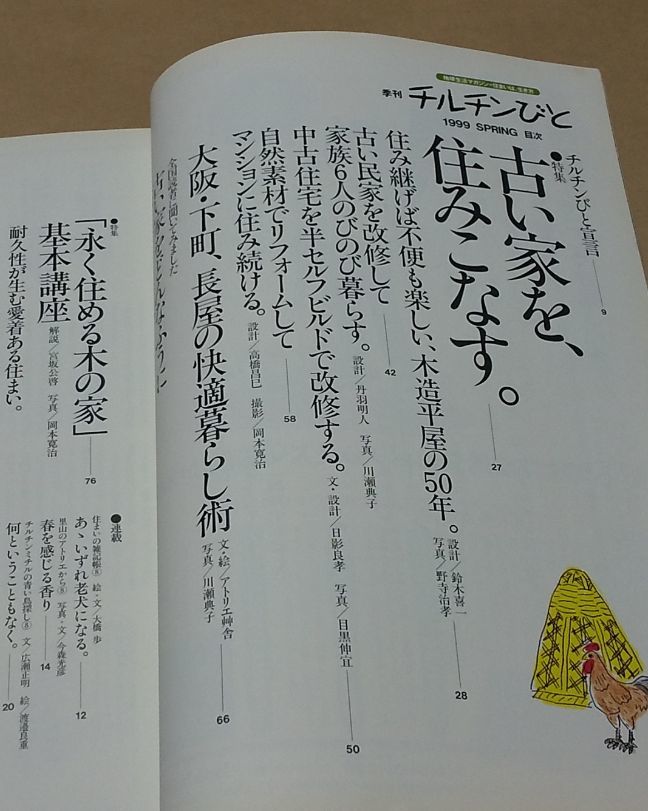 地球生活マガジン＝住まいは、生き方
季刊 チルチンびと
1999 SPRING 目次
チルチンびと宣言 9
●特集
古い家を、
住みこなす。 27
住み継げば不便も楽しい、木造平屋の50年。 設計／鈴木喜一 写真／野寺治孝 28
古い民家を改修して 42
家族6人のびのび暮らす。 設計／丹羽明人 写真／川瀬典子
中古住宅を半セルフビルドで改修する。 文・設計／日影良孝 写真／目黒伸宜 50
自然素材でリフォームして 58
マンションに住み続ける。 設計／高橋昌巳 撮影／岡本寛治
大阪・下町、長屋の快適暮らし術 文・絵／アトリエ艸舎 写真／川瀬典子 66
全国読者に聞いてみました
●特集
「永く住める木の家」
基本講座 解説／宮坂公啓 写真／岡本寛治 76
耐久性が生む愛着ある住まい。
●連載
住まいの雑記帳⑧ 絵・文／大橋 歩
あゝいずれ老犬になる。 12
里山のアトリエから⑧ 写真・文／今森光彦
春を感じる香り 14
チルチンミチルの青い鳥探し⑧ 文／広瀬正明 絵／渡邉良重
何ということもなく。 20